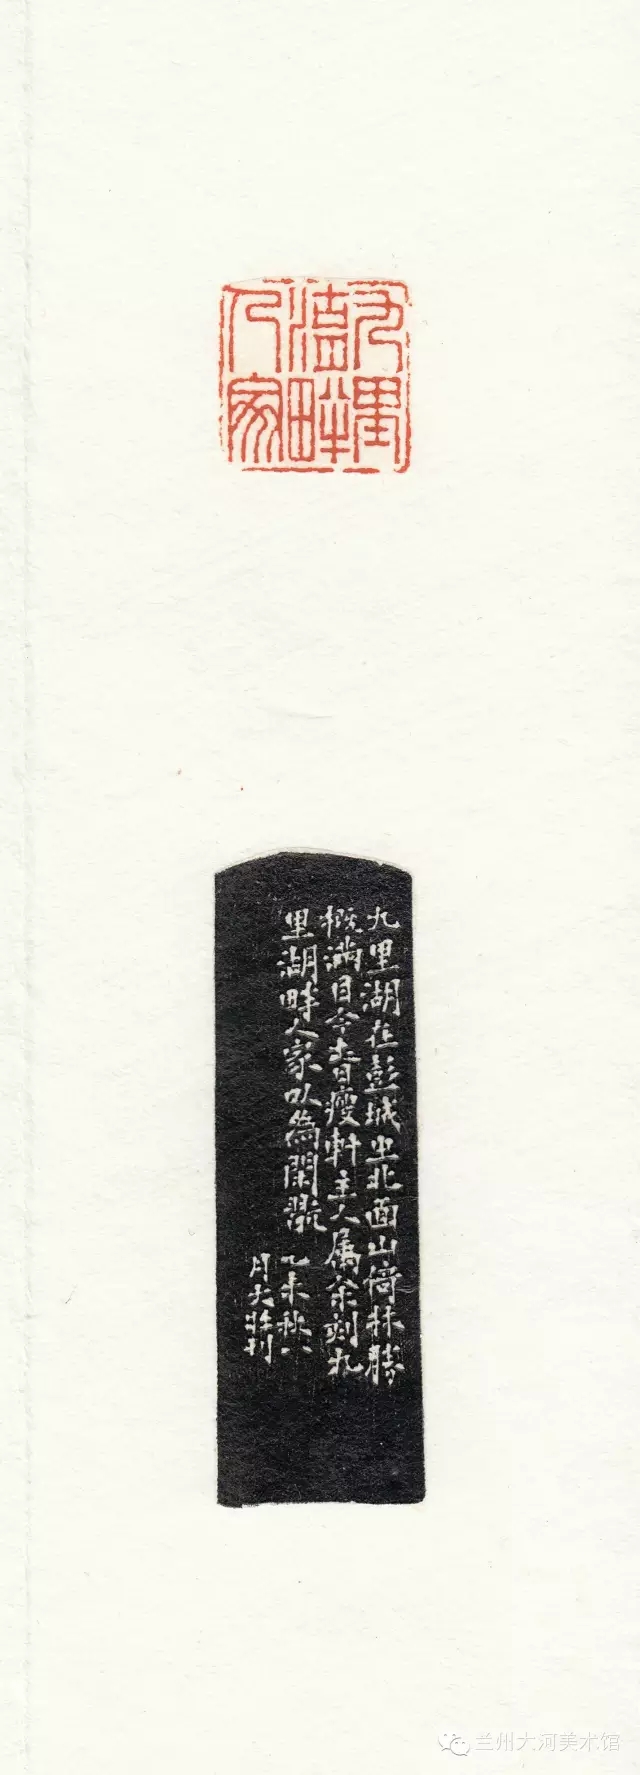 九里湖畔人家
九里湖在彭城坐北面山倚林勝
概滿目今春日瘦軒主人属余刻九
里湖畔人家以為閑章 乙未秋八
月大
兰州大河美术馆